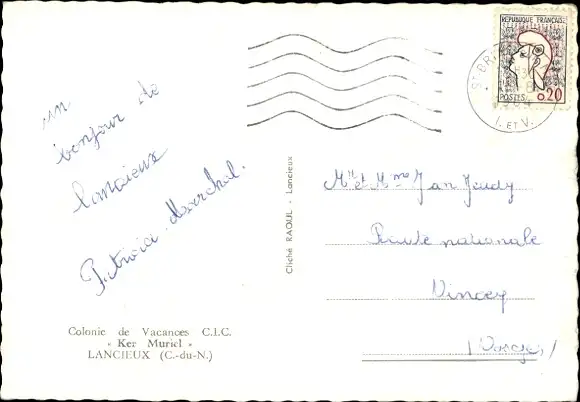 un
bonjour de
Lancieux
Patricia Marchal.
Colonie de Vacances C.I.C.
« Ker Muriel »
LANCIEUX (C.-du-N.)
Cliché RAOUL - Lancieux
REPUBLIQUE FRANÇAISE
POSTES 0,20
ST BR
I. ET V.
Mr et Mme Jan Jeudy
Route nationale
Vincey
(Vosges)